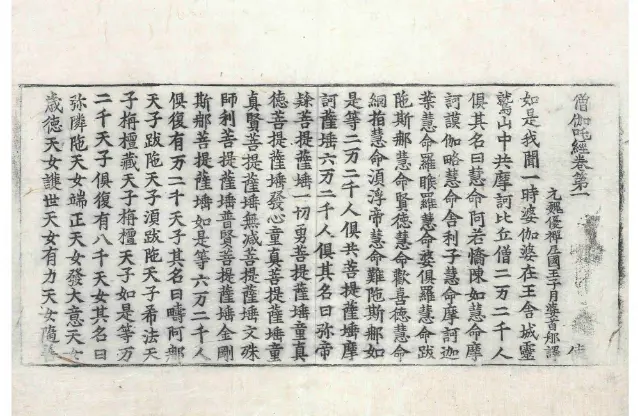 僧伽吒經卷第一
元魏優禪尼國王子月婆首那譯
如是我聞一時婆伽婆在王舍城靈
鷲山中共摩訶比丘僧二万二千人
俱其名曰慧命阿若憍陳如慧命摩
訶謨伽略慧命舍利子慧命摩訶迦
葉慧命羅睺羅慧命婆俱羅慧命跋
陁斯那慧命賢德慧命歡喜德慧命
網拍慧命湏浮帝慧命難陁斯那如
是等二万二千人俱共菩提薩埵摩
訶薩埵六万二千人俱其名曰弥帝
隸菩提薩埵一切勇菩提薩埵童真
德菩提薩埵發心童真菩提薩埵童
真賢菩提薩埵無減菩提薩埵文殊
師利菩提薩埵普賢菩提薩埵金剛
斯那菩提薩埵如是等六万二千人
俱復有万二千天子其名曰疇阿那
天子跋陁天子湏跋陁天子希法天
子栴檀藏天子栴檀天子如是等万
二千天子俱復有八千天女其名曰
弥隣陁天女端正天女發大意天女
歲德天女護世天女有力天女